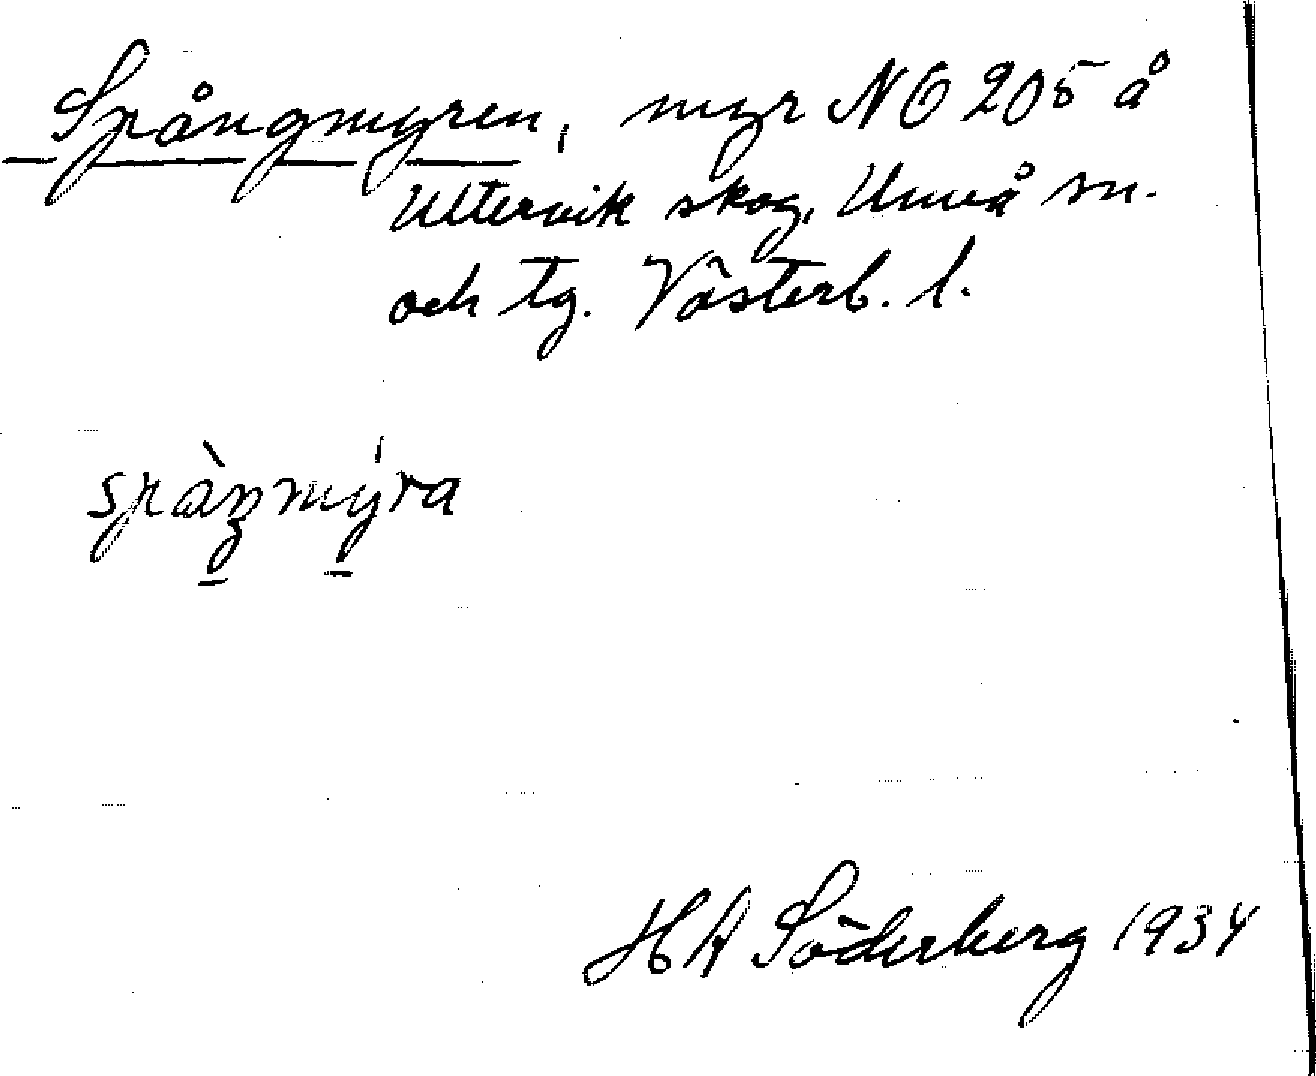 Spångmyren, myr NO 205 å
Ultervik skog, Umeå sn.
och tg. Västerb. l.
spàŋmýra
H A Söderberg 1934